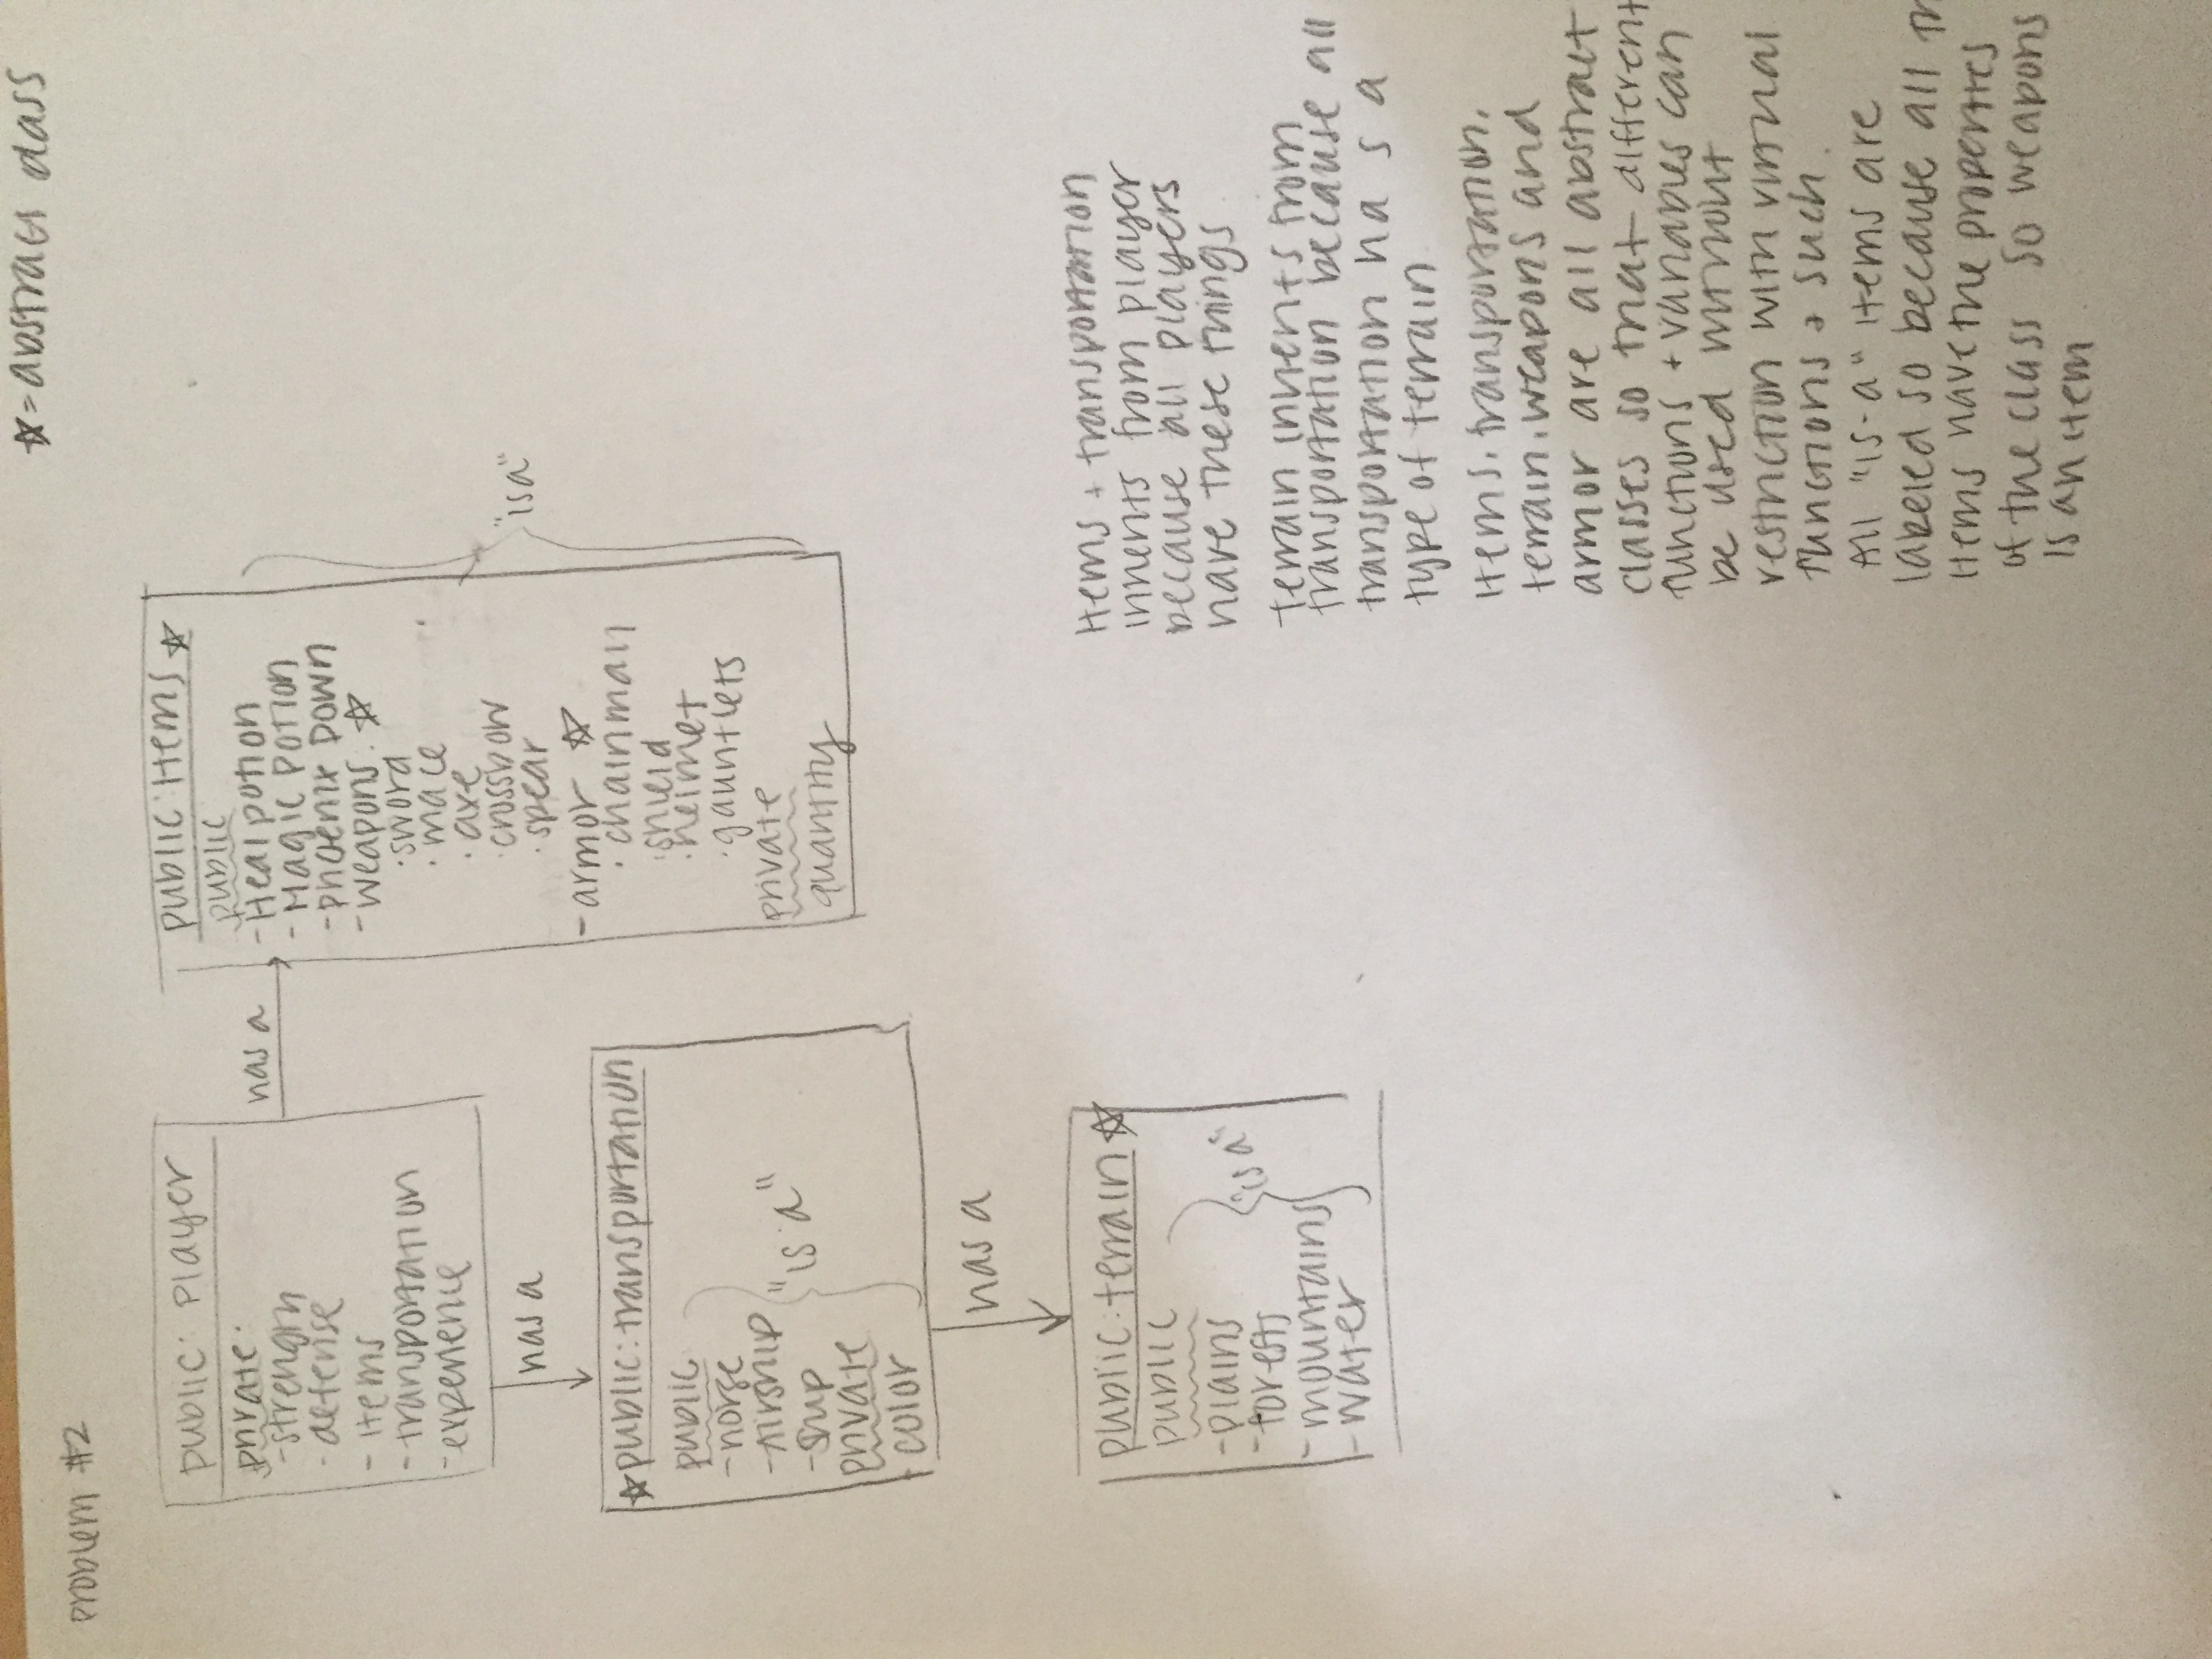 ☆=abstract class
problem #2
public: player
private:
-strength
-defense
-items
-transportation
-experience
has a
public:Items ☆
public
-Heal potion
-Magic Potion
-phoenix Down
-weapons. ☆
·sword
·mace
·axe
·crossbow
·spear
-armor ☆
·chainmail
·shield
·helmet
·gauntlets
private
quantity
"is a"
has a
☆public:transportation
public
-horse
-Airship
-Ship
private
-color
"is a"
has a
public:terrain☆
public
-plains
-forests
-mountains
-water
"is a"
Items + transportation
inherits from player
because all players
have these things.
terrain inherits from
transportation because all
transportation ha s a
type of terrain
Items, transportation,
terrain, weapons and
armor are all abstract
classes so that different
functions + variables can
be used without
restriction with virtual
functions + such.
All "is-a" items are
labeled so because all
items have the properties
of the class so weapons
is an item.